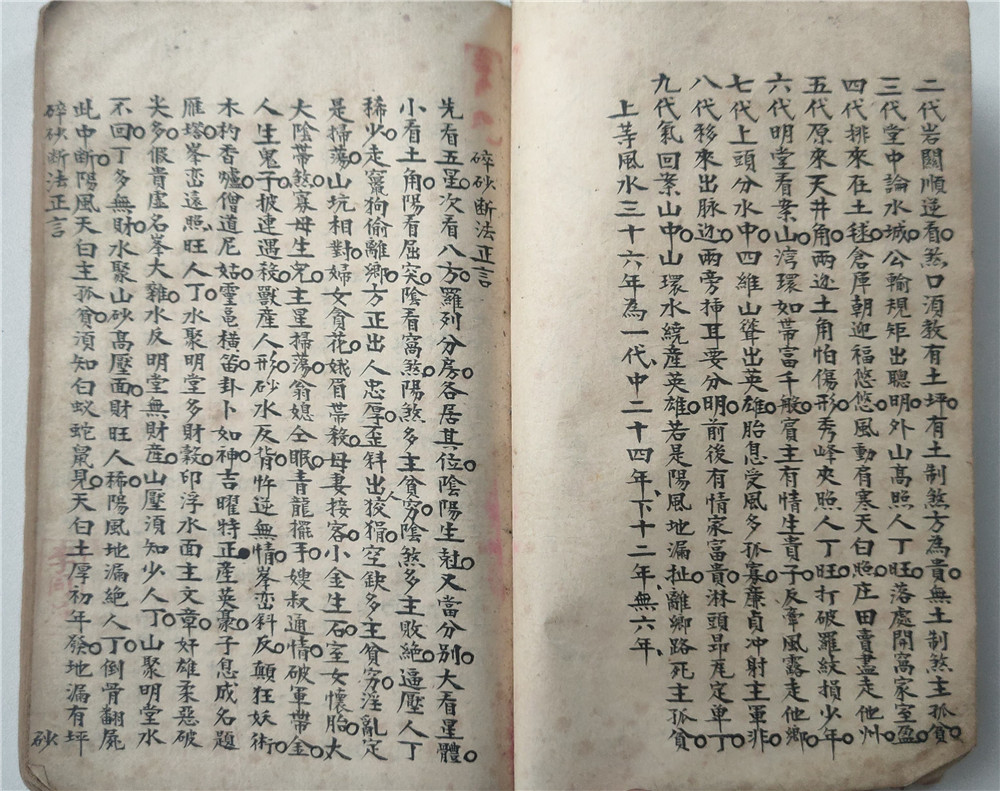 二代岩闗順逆看煞口湏教有土坪有土制煞方為貴無土制煞主孤貧
三代堂中論水城公輸規矩出聰明外山高照人丁旺落處開窩家室盈
四代排來在土毬倉庫朝迎福悠悠風動肩寒天白照庄田賣盡走他州
五代原來天井角兩边土角怕傷形秀峰夾照人丁旺打破羅紋損少年
六代明堂看案山湾環如帶富千般賓主有情生貴子反弯風露走他鄉
七代上頭分水中四維山聳出英雄胎息受風多孤寡廉貞冲射主軍非
八代移來出脉边兩旁揷耳要分明前後有情家富貴淋頭昂尾定单丁
九代氣回案山中山環水繞產英雄若是陽風地漏扯離鄉路死主孤貧
上等風水三十六年為一代中二十四年下十二年無六年
碎砂断法正言
先看五星次看八方羅列分房各居其位陰陽生尅又當分别大看星體
小看土角陽看屈突陰看窩煞陽煞多主貧穷陰煞多主敗絶逼壓人丁
稀少走竄狗偷離鄉方正出人忠厚歪斜出人狡猾空缺多主貧穷淫亂定
是掃蕩山坑相對婦女貪花娥眉帶殺母妻接客小金生石室女懷胎太
大陰帶煞寡母生児主星掃蕩翁媳仝眠青龍擺手嫂叔通情破軍帶金
人生鬼子披連遇殺獸産人形砂水反背忤逆無情峯峦斜反顛狂妖術
木杓香爐僧道尼姑霊亀横笛卦卜如神吉曜特正産英豪子息成名題
雁塔峯峦遠照旺人丁水聚明堂多財穀印浮水面主文章奸雄柔惡破
尖多假貴虛名峯大雜水反明堂無財産山壓湏知少人丁山聚明堂水
不回丁多無財水聚山砂高壓面財旺人稀陽風地漏絶人丁倒骨翻屍
此中断陽風天白主孤貧湏知白蚁蛇鼠見天白土厚初年發地漏有坪
碎砂断法正言
砂